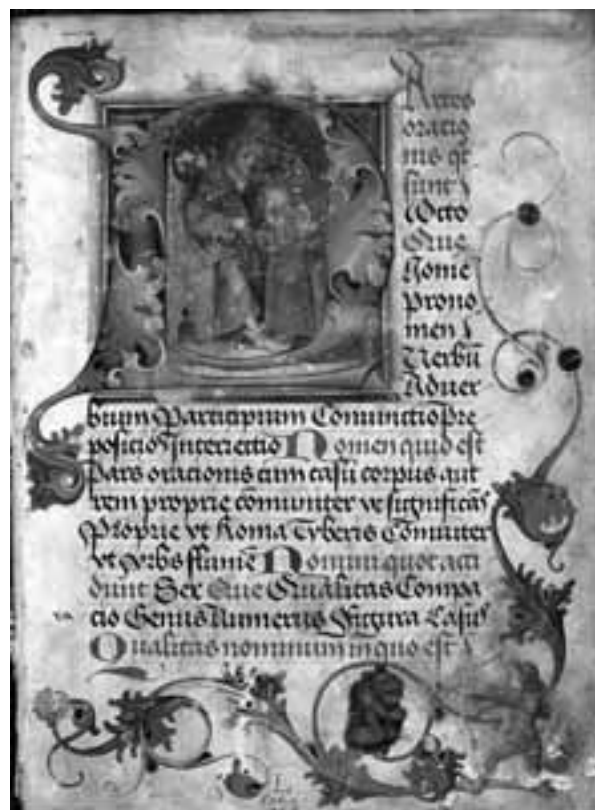 Partes
oratio
nis qt
sunt
Octo
Que
Nome
prono
men
Verbū
Aduer
bium Participium Coniunctio Pre
positio Interiectio Nomen quid est
Pars orationis cum casu corpus aut
rem proprie comuniter ve significās
Proprie vt Roma Tyberis Comuniter
vt vrbs flumē Nomini quot acci
dunt Sex Que Qualitas Compa
cio Genus Numerus Figura Casus
Qualitas nominum in quo est